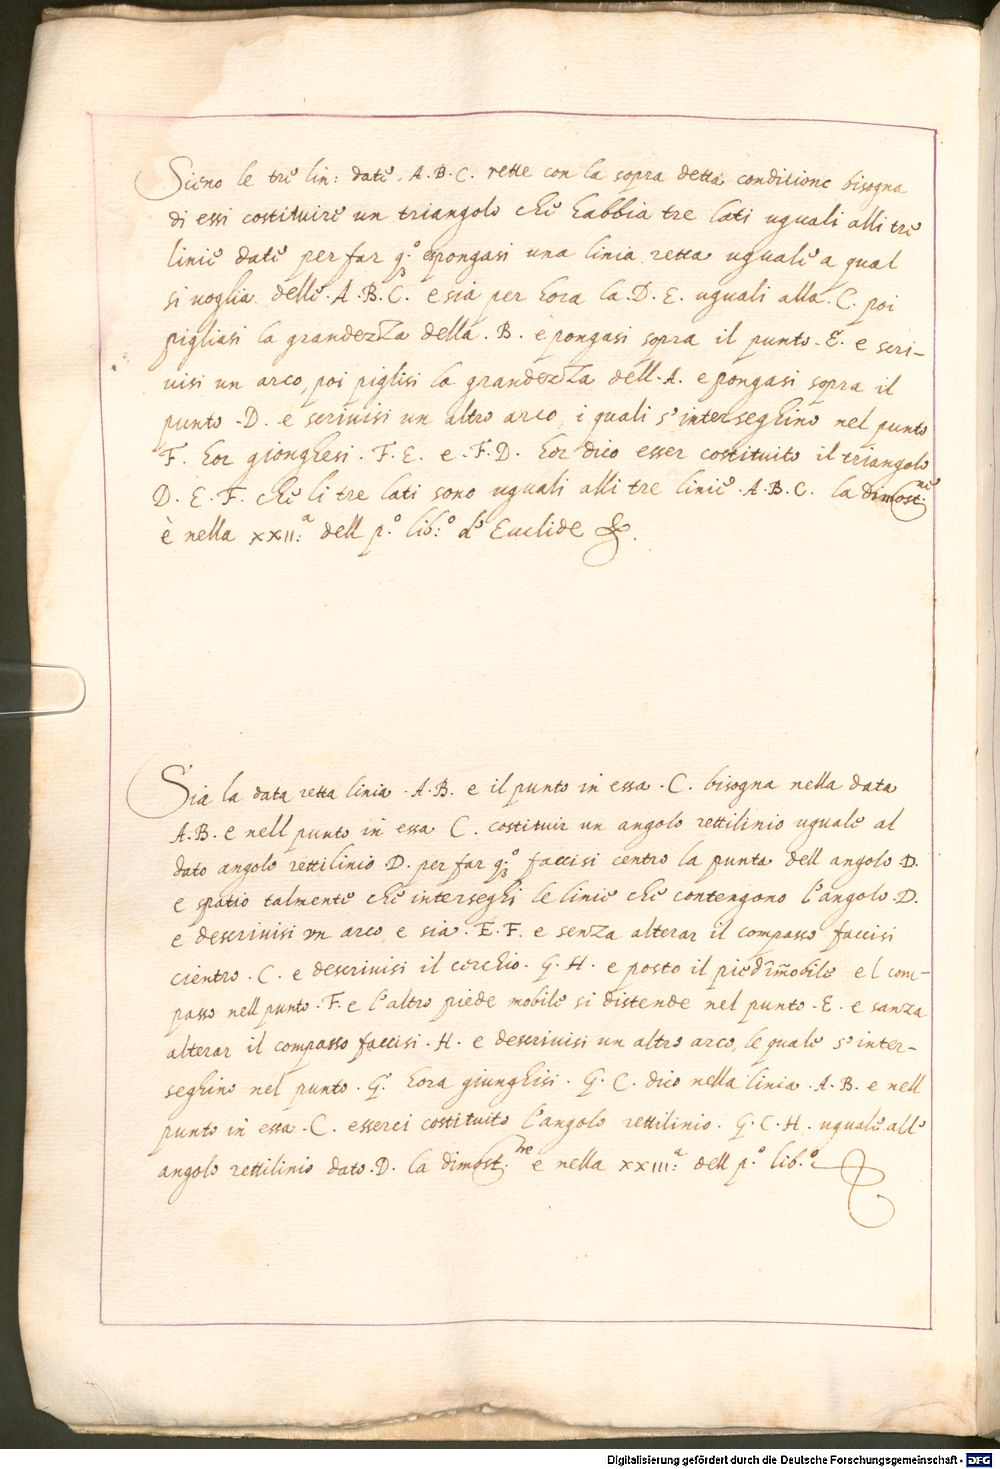 Sieno le tre lin: date. A. B. C. rette con la sopra detta conditione bisogna
di essi costituire un triangolo che habbia tre lati uguali alli tre
linie date per far q.º epongasi una linia retta uguale a qual
si uoglia delle. A. B. C. e sia per hora la. D. E. uguali alla. C. poi
pigliasi la grandezza della. B. e pongasi sopra il punto. E. e scri-
uisi un arco, poi piglisi la grandezza dell. A. e pongasi sopra il
punto. D. e scriuisi un altro arco, i quali s'interseghino nel punto
F. hor gionghesi. F. E. e. F. D. hor dico esser costituito il triangolo
D. E. F. che li tre lati sono uguali alli tre linie. A. B. C. la dimost:ne
è nella XXII:ª dell p.º lib:º d'e Euclide
Sia la data retta linia. A. B. e il punto in essa. C. bisogna nella data
A. B. e nell punto in essa C. costituir un angolo rettilinio uguale al
dato angolo rettilinio D. per far q.º faccisi centro la punta dell angolo. D.
e spatio talmente che interseghi le linie che contengono l'angolo. D.
e descriuisi vn arco, e sia. E. F. e senza alterar il compasso faccisi
cientro. C. e descriuisi il cerchio. G. H. e posto il pied'im̃obile e l com-
passo nell punto. F. e l'altro piede mobile si distende nel punto. E. e sanza
alterar il compasso faccisi. H. e descriuisi un altro arco, le quale s'inter-
seghino nel punto. G. hora giunghisi. G. C. dico nella linia. A. B. e nell
punto in essa. C. esserci costituito l'angolo rettilinio. G. C. H. uguale all
angolo rettilinio dato. D. la dimost:ne e nella XXIII:ª dell p.º lib:º
Digitalisierung gefördert durch die Deutsche Forschungsgemeinschaft - DFG